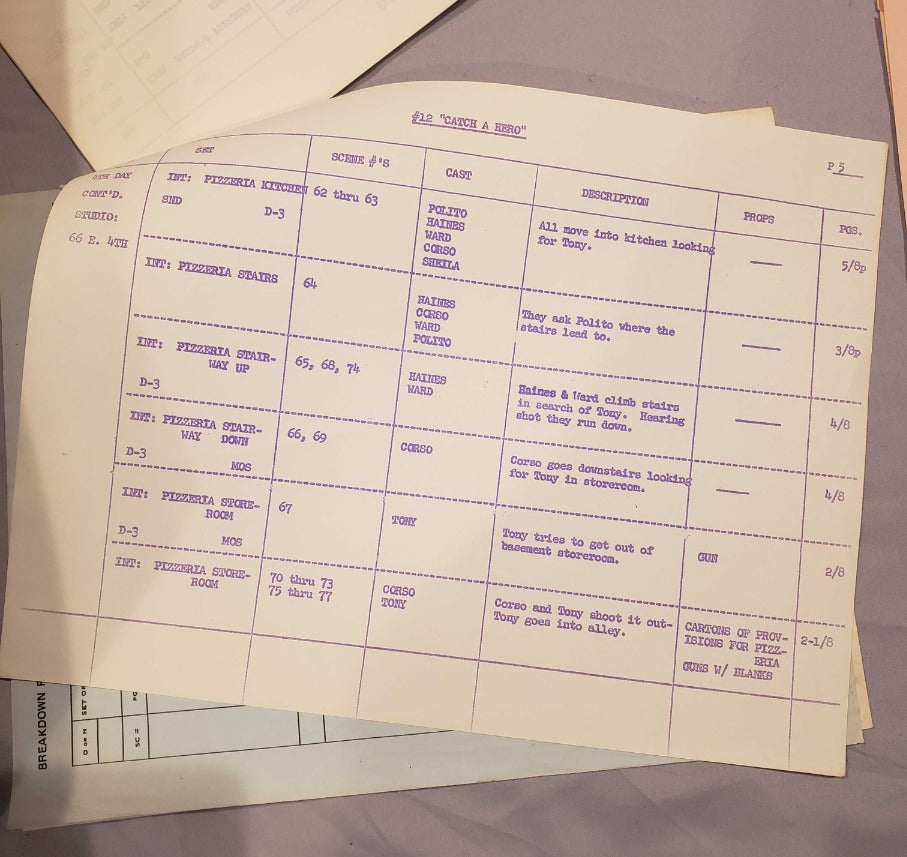 #12 "CATCH A HERO"
P 5
SET
SCENE #'S
CAST
DESCRIPTION
PROPS
PGS.
DAY
CONT'D.
STUDIO:
66 E. 4TH
INT: PIZZERIA KITCHEN
SND
D-3
62 thru 63
POLITO
HAINES
WARD
CORSO
SHEILA
All move into kitchen looking
for Tony.
5/8p
INT: PIZZERIA STAIRS
64
HAINES
CORSO
WARD
POLITO
They ask Polito where the
stairs lead to.
3/8p
INT: PIZZERIA STAIR-
WAY UP
D-3
65, 68, 74
HAINES
WARD
Haines & Ward climb stairs
in search of Tony. Hearing
shot they run down.
4/8
INT: PIZZERIA STAIR-
WAY DOWN
D-3
MOS
66, 69
CORSO
Corso goes downstairs looking
for Tony in storeroom.
4/8
INT: PIZZERIA STORE-
ROOM
D-3
MOS
67
TONY
Tony tries to get out of
basement storeroom.
GUN
2/8
INT: PIZZERIA STORE-
ROOM
70 thru 73
75 thru 77
CORSO
TONY
Corso and Tony shoot it out-
Tony goes into alley.
CARTONS OF PROV-
ISIONS FOR PIZZ-
ERIA
GUNS W/ BLANKS
2-1/8
BREAKDOWN
D or N
SET OR
SC #